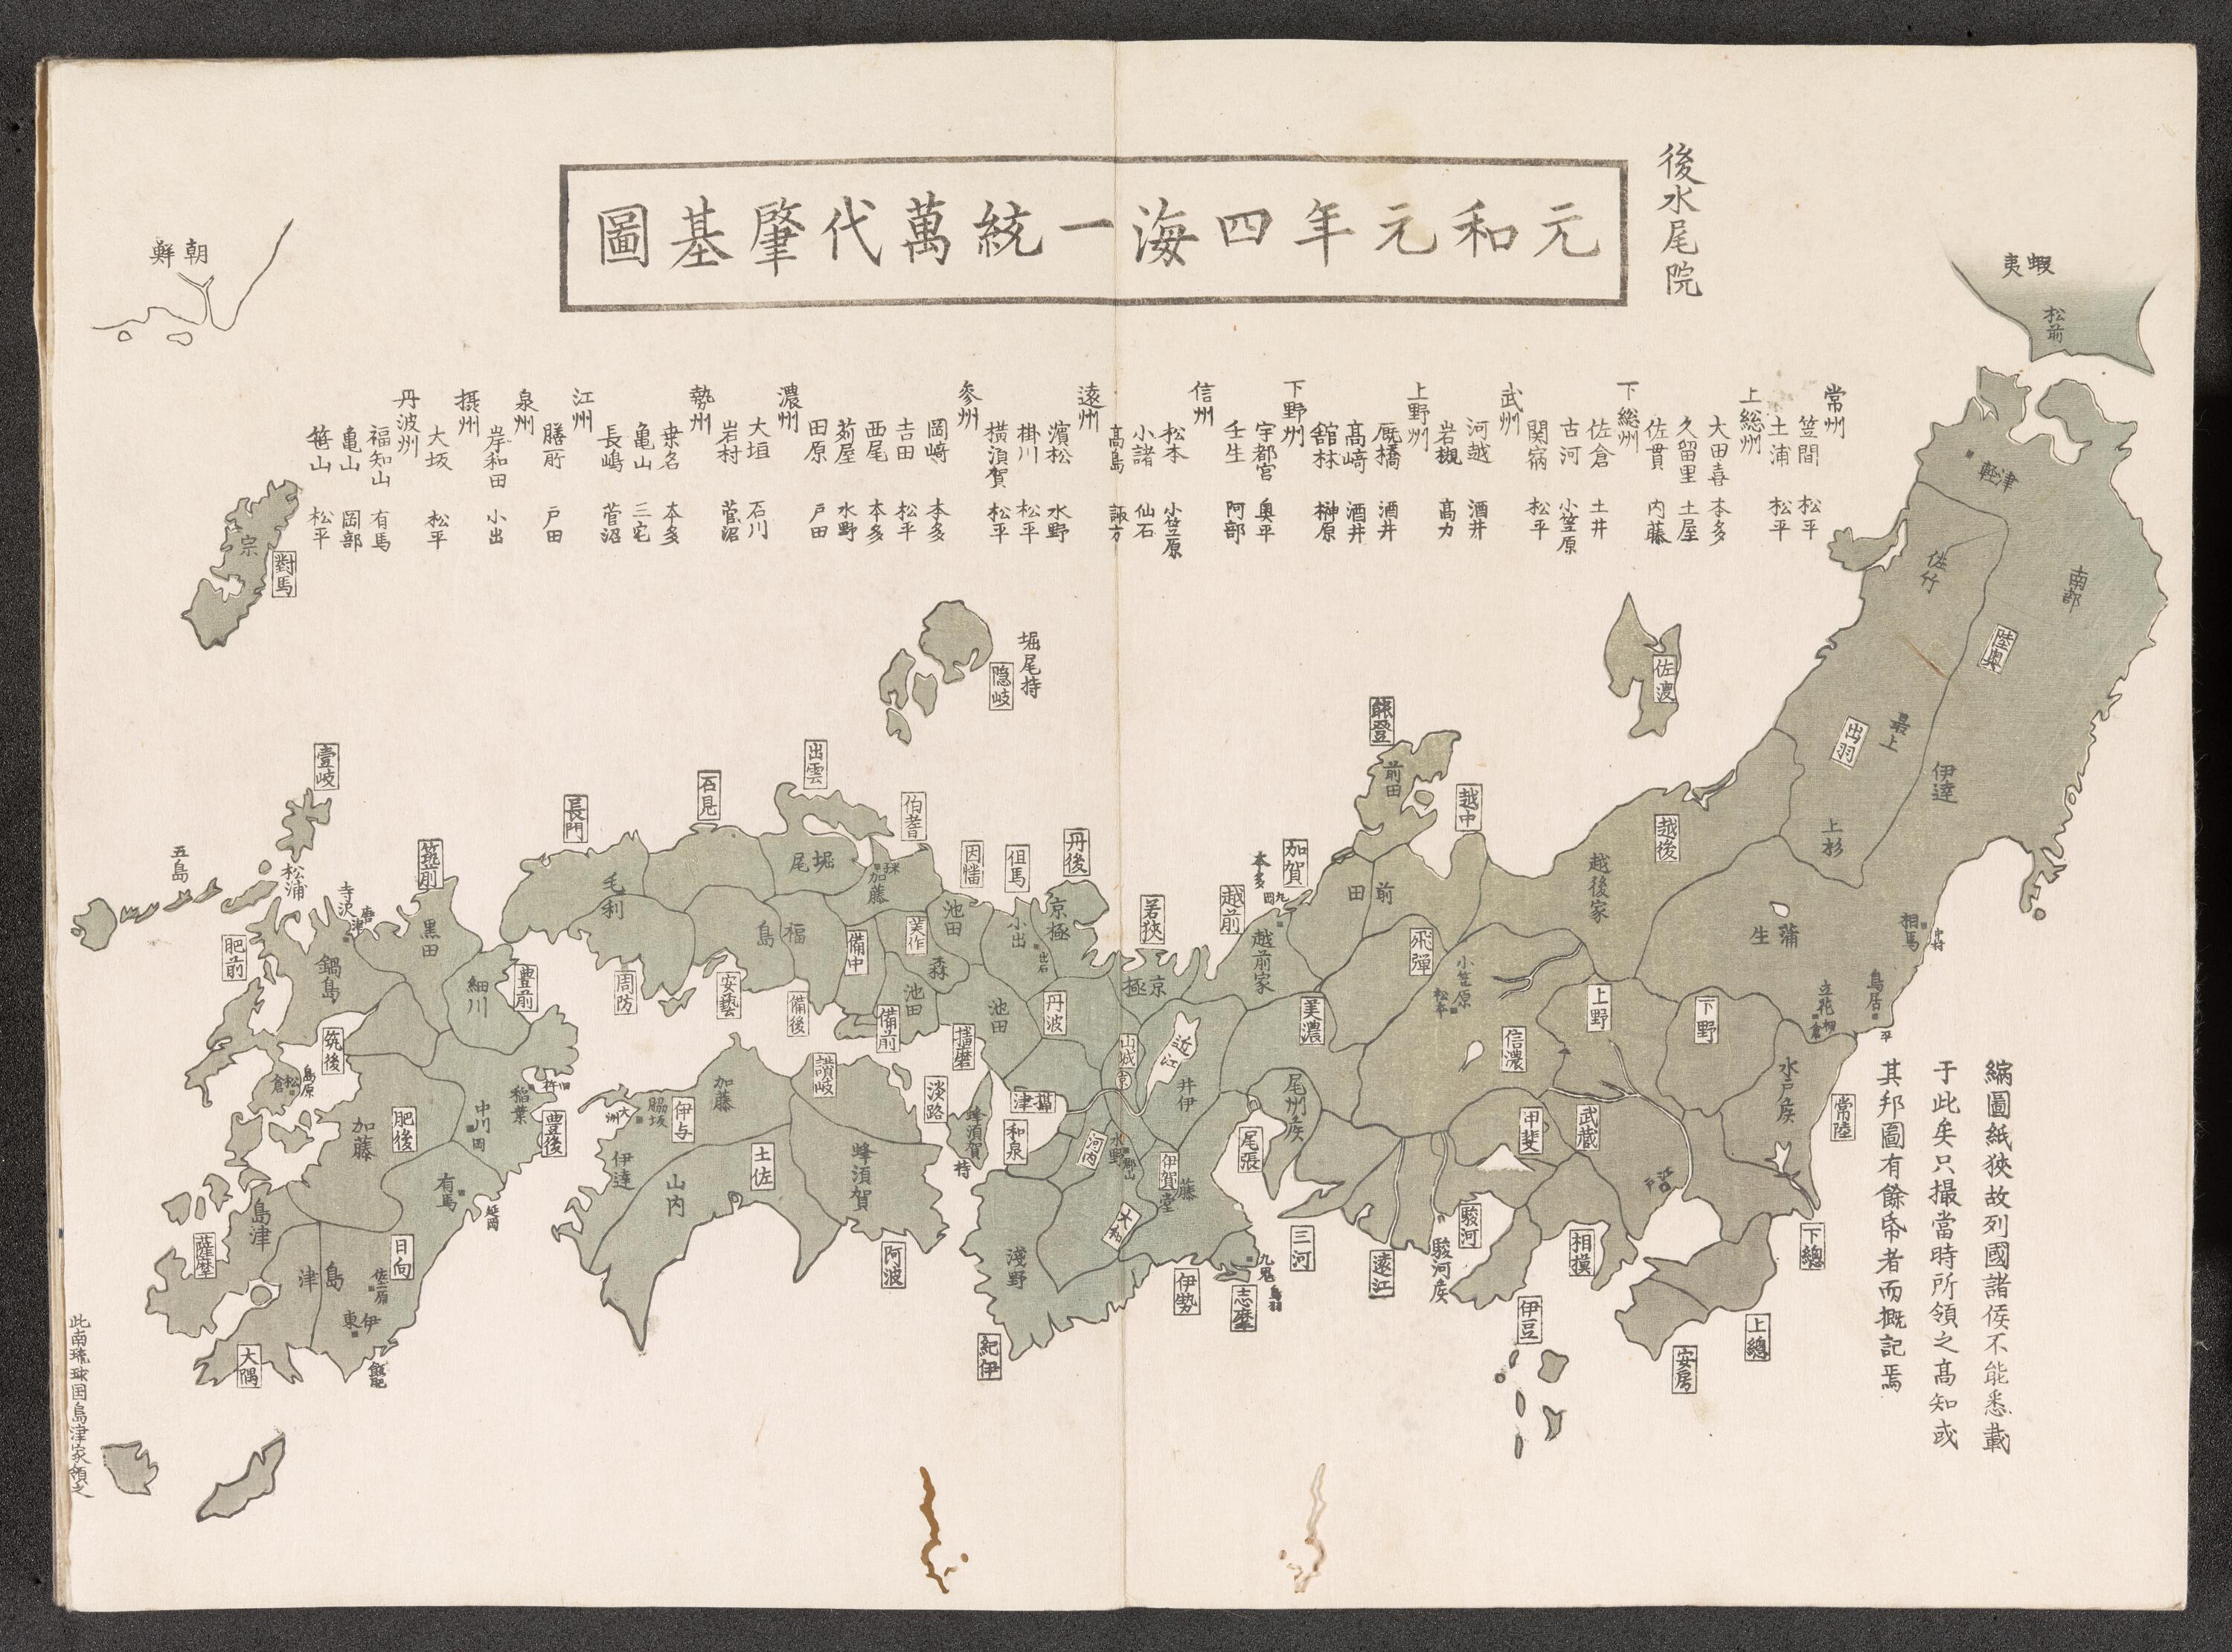 後水尾院
元和元年四海一統萬代肇基圖
常州
笠間 松平
土浦 松平
上総州
大田喜 本多
久留里 土屋
佐貫 内藤
下総州
佐倉 土井
古河 小笠原
関宿 松平
武州
河越 酒井
岩槻 高力
上野州
厩橋 酒井
高崎 酒井
舘林 榊原
下野州
宇都宮 奥平
壬生 阿部
信州
松本 小笠原
小諸 仙石
高島 諏方
遠州
濱松 水野
掛川 松平
横須賀 松平
参州
岡崎 本多
吉田 松平
西尾 本多
苅屋 水野
田原 戸田
濃州
大垣 石川
岩村 菅沼
勢州
桒名 本多
亀山 三宅
長嶋 菅沼
江州
膳所 戸田
泉州
岸和田 小出
摂州
大坂 松平
丹波州
福知山 有馬
亀山 岡部
笹山 松平
縮圖紙狹故列國諸侯不能悉載
于此矣只撮當時所領之高知或
其邦圖有餘帋者而概記焉
蝦夷
松前
津軽
南部
佐竹
陸奥
出羽
最上
伊達
上杉
佐渡
越後
越後家
蒲生
相馬
中村
鳥居
平
立花
棚倉
水戸侯
常陸
下野
上野
信濃
小笠原
松本
武蔵
江戸
甲斐
下總
上總
安房
相摸
伊豆
駿河
駿河侯
遠江
三河
尾張
尾州侯
美濃
飛彈
能登
前田
越中
加賀
前田
本多
九岡
越前
越前家
若狹
京極
近江
井伊
山城
京
丹後
京極
丹波
但馬
小出
出石
因幡
池田
播磨
池田
攝津
和泉
河内
水野
郡山
大和
伊賀
藤堂
伊勢
志摩
九鬼
鳥羽
紀伊
淺野
淡路
蜂須賀持
隠岐
堀尾持
伯耆
加藤
米子
出雲
堀尾
石見
美作
森
備前
池田
備中
備後
福島
安藝
周防
長門
毛利
讃岐
阿波
蜂須賀
土佐
山内
伊与
加藤
脇坂
大洲
伊達
筑前
黒田
豊前
細川
豊後
稲葉
臼杵
中川
岡
筑後
肥前
鍋島
寺沢
唐津
松浦
五島
壹岐
對馬
宗
朝鮮
松倉
島原
肥後
加藤
日向
有馬
延岡
佐土原
伊東
飫肥
島津
薩摩
島津
大隅
此南琉球国島津家領之